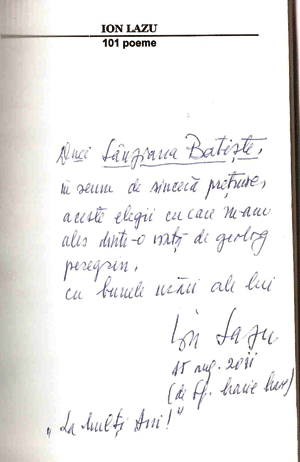 ION LAZU
101 poeme
D-nei Sânziana Batiște,
în semn de sinceră prețuire,
aceste elegii cu care m-am
ales dintr-o viață de geolog
peregrin,
cu bunele urări ale lui
Ion Lazu
15 aug. 2011
(de Sf. Marie Mare)
"La mulți Ani!"